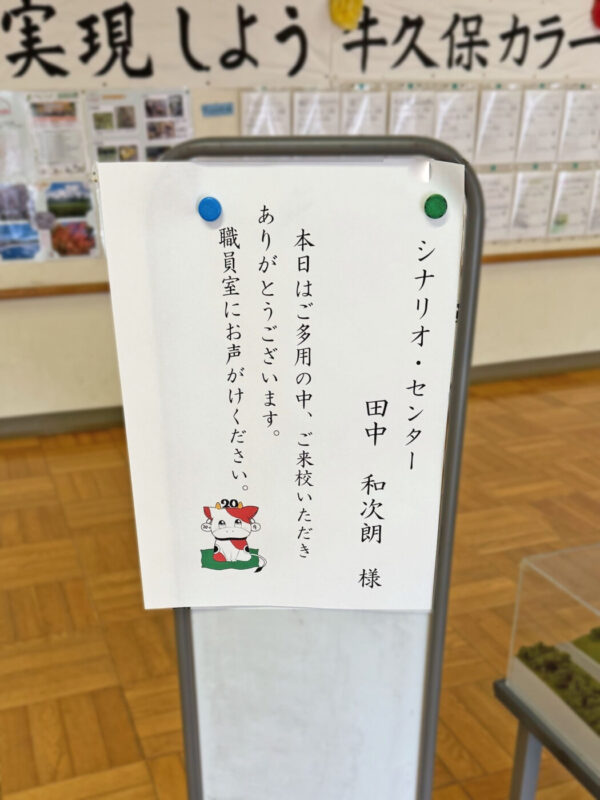 実現しよう 牛久保カラー
シナリオ・センター
田中 和次朗 様
本日はご多用の中、ご来校いただき
ありがとうございます。
職員室にお声がけください。
20